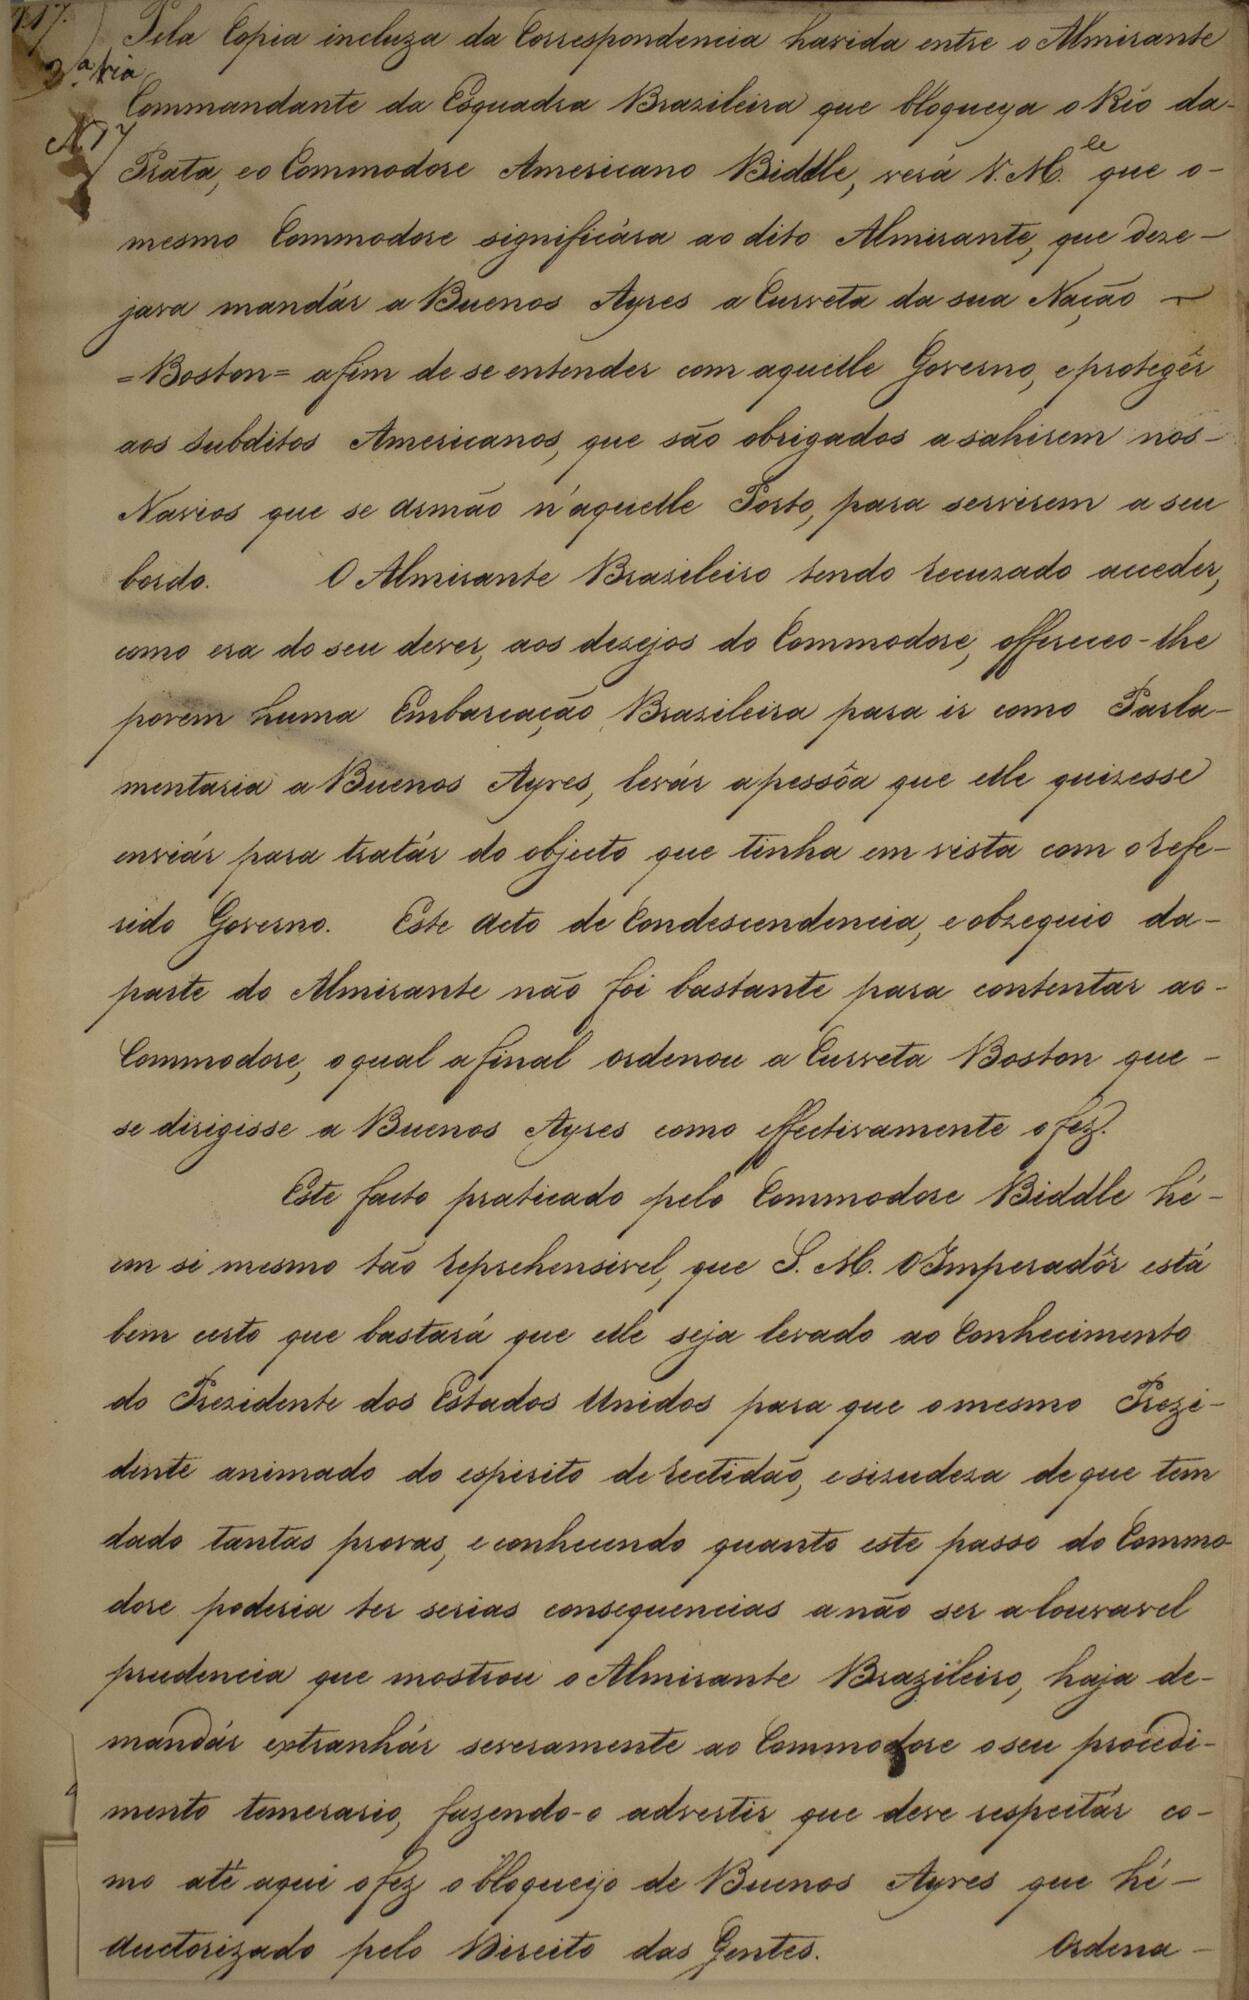 2ª via
N. 17
Pela Copia incluza da Correspondencia havida entre o Almirante
Commandante da Esquadra Brazileira que bloqueya o Rio da-
Prata, e o Commodore Americano Biddle, verá V. M.ce que o-
mesmo Commodore significára ao dito Almirante, que deze-
java mandár a Buenos Ayres a Curveta da sua Nação
=Boston= afim de se entender com aquelle Governo, e protegêr
aos subditos Americanos, que são obrigados a sahirem nos-
Navios que se armão n'aquelle Porto, para servirem a seu
bordo. O Almirante Brazileiro tendo recuzado acceder,
como era do seu dever, aos dezejos do Commodore, offereceo-lhe
porem huma Embarcação Brazileira para ir como Parla-
mentaria a Buenos Ayres, levár a pessôa que elle quizesse
enviár para tratár do objecto que tinha em vista com o refe-
rido Governo. Este acto de Condescendencia, e obzequio da-
parte do Almirante não foi bastante para contentar ao-
Commodore, o qual afinal ordenou a Curveta Boston que-
se dirigisse a Buenos Ayres como effectivamente o féz.
Este facto praticado pelo Commodore Biddle hé-
em si mesmo tão reprehensivel, que S. M. O Imperadôr está
bem certo que bastará que elle seja levado ao Conhecimento
do Prezidente dos Estados Unidos para que o mesmo Prezi-
dente animado do espirito de rectidão, e sizudeza de que tem
dado tantas provas, e conhecendo quanto este passo do Commo-
dore poderia ter serias consequencias a não ser a louvavel
prudencia que mostrou o Almirante Brazileiro, haja de-
mandár extranhár severamente ao Commodore o seu procedi-
mento temerario, fazendo-o advertir que deve respeitár co-
mo até aqui o fez o bloqueijo de Buenos Ayres que hé-
auctorizado pelo Direito das Gentes. Ordena-